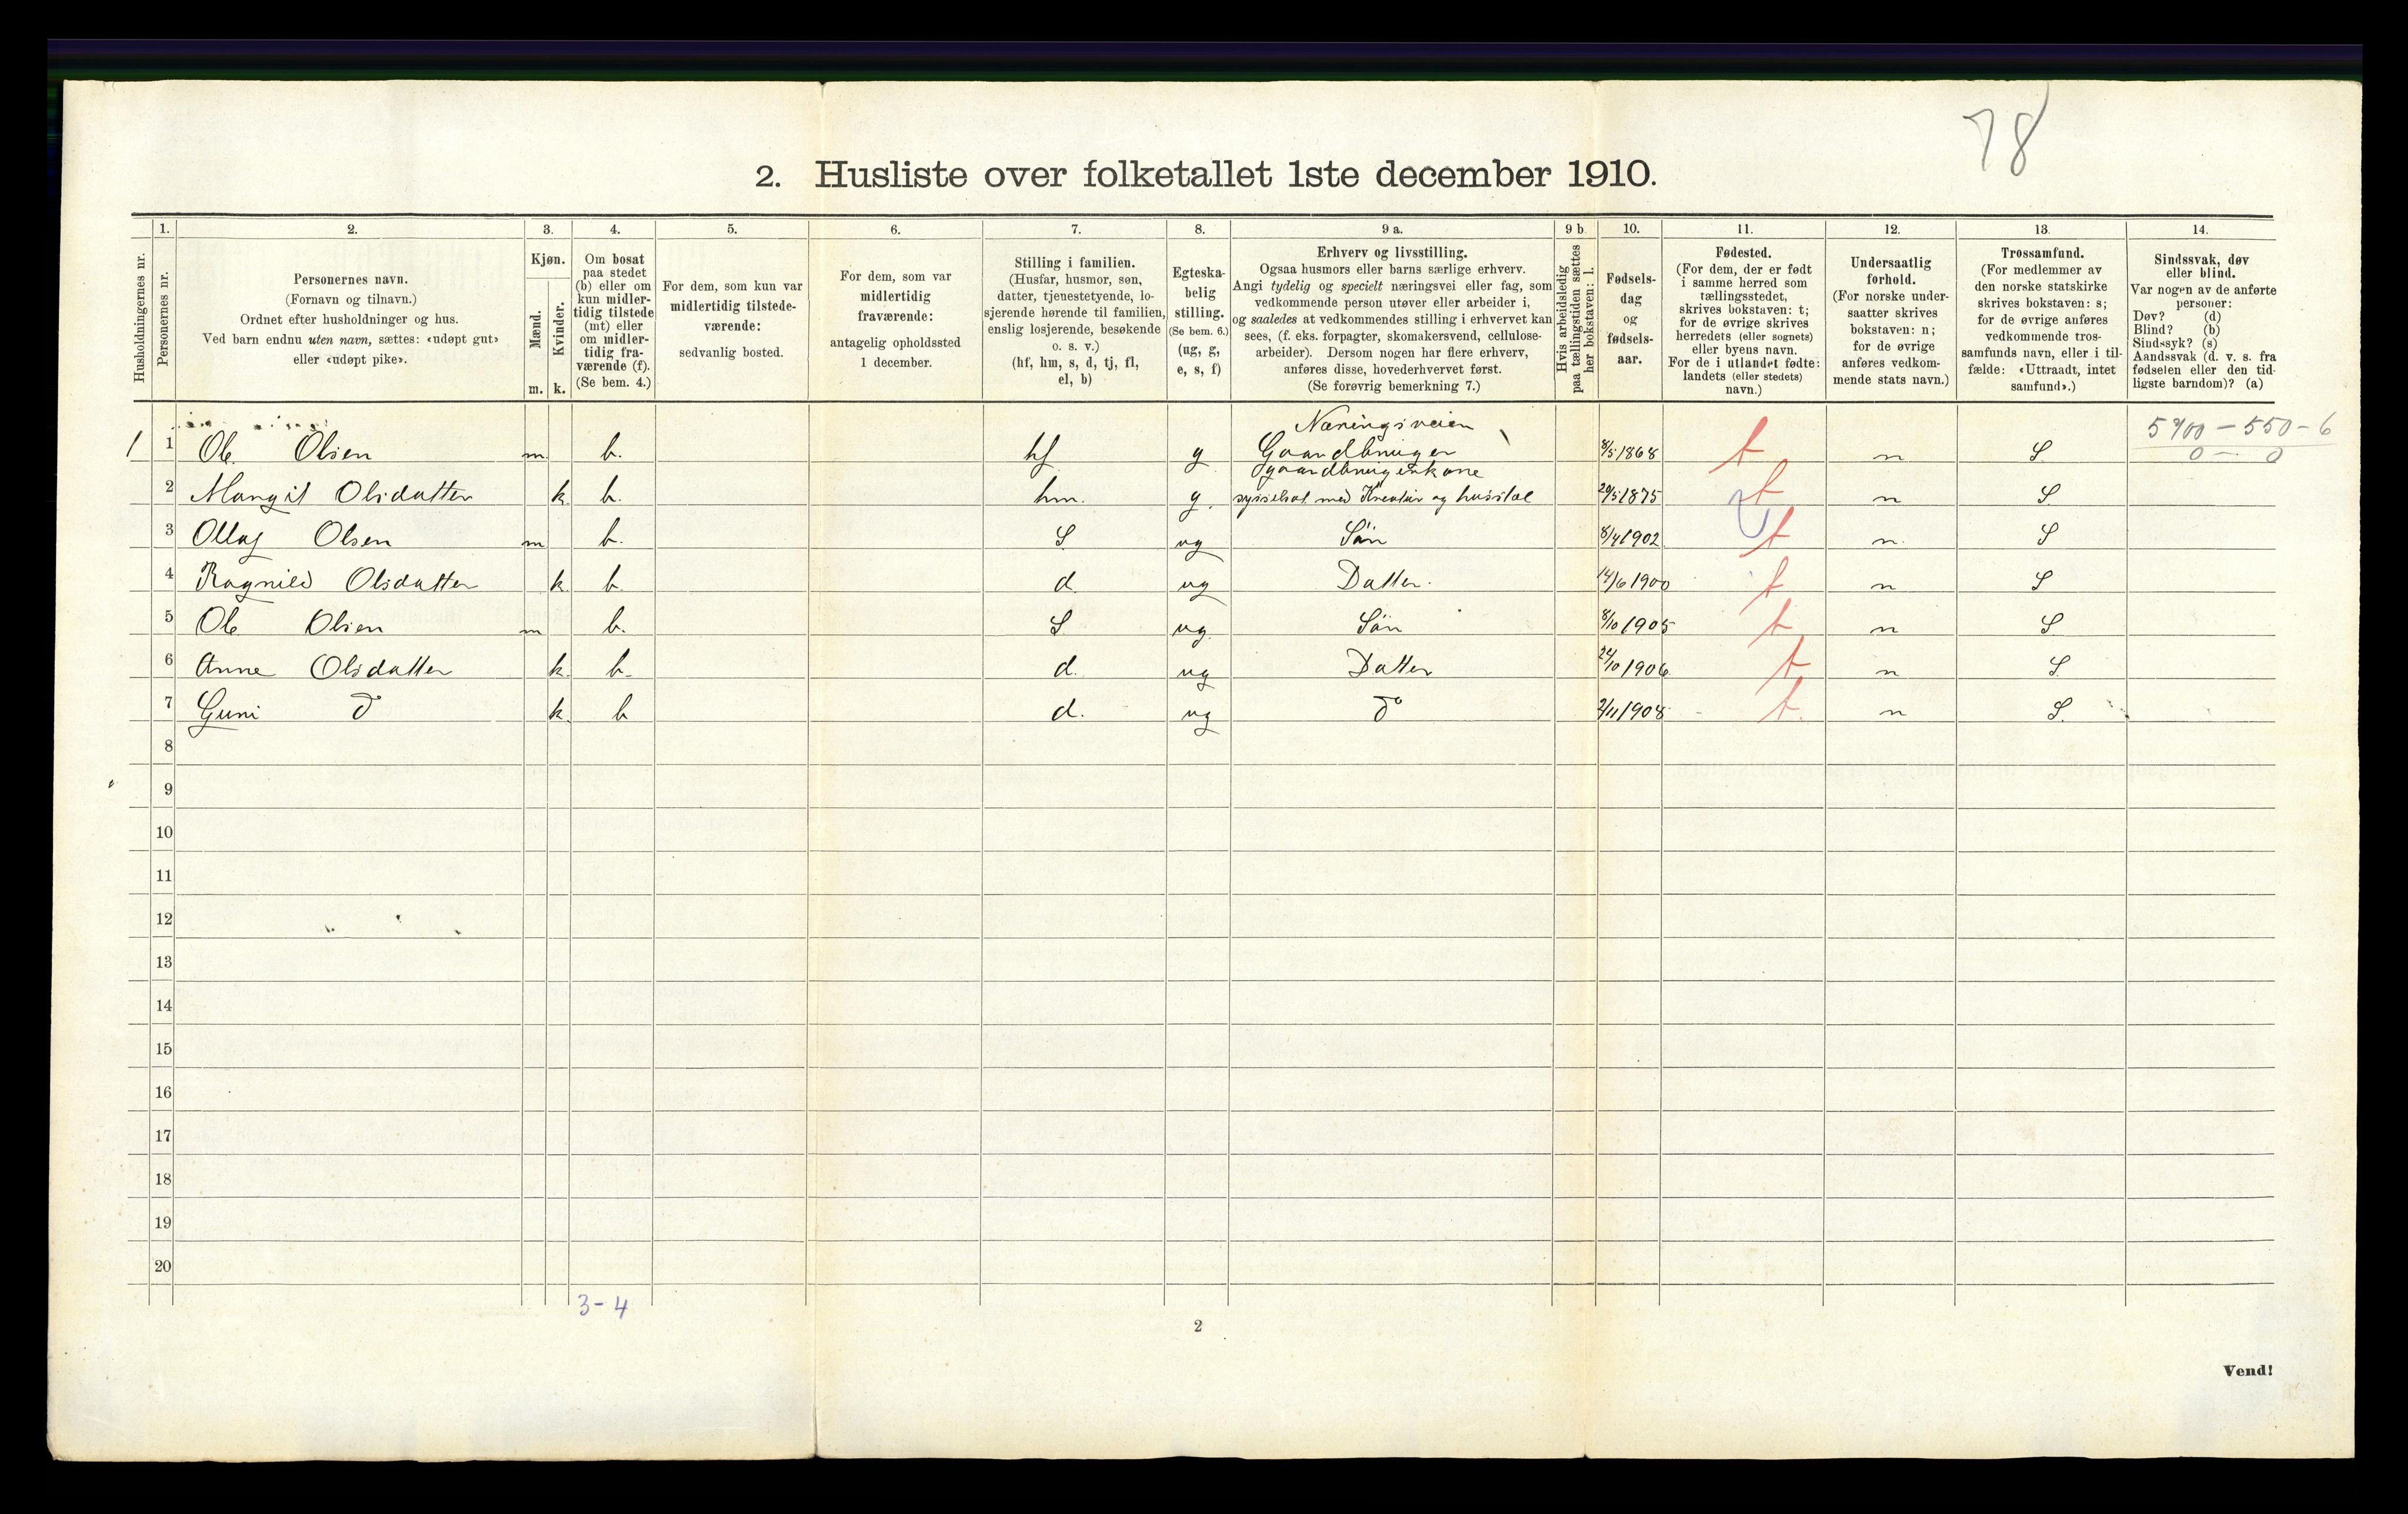 78
2. Husliste over folketallet 1ste december 1910.
Husholdningernes nr.
1.
Personernes nr.
2.
Personernes navn.
(Fornavn og tilnavn.)
Ordnet efter husholdninger og hus.
Ved barn endnu uten navn, sættes: «udøpt gut»
eller «udøpt pike».
3.
Kjøn.
Mænd.
Kvinder.
m. k.
4.
Om bosat
paa stedet
(b) eller om
kun midler-
tidig tilstede
(mt) eller
om midler-
tidig fra-
værende (f).
(Se bem. 4.)
5.
For dem, som kun var
midlertidig tilstede-
værende:
sedvanlig bosted.
6.
For dem, som var
midlertidig
fraværende:
antagelig opholdssted
1 december.
7.
Stilling i familien.
(Husfar, husmor, søn,
datter, tjenestetyende, lo-
sjerende hørende til familien,
enslig losjerende, besøkende
o. s. v.)
(hf, hm, s, d, tj, fl,
el, b)
8.
Egteska-
belig
stilling.
(Se bem. 6.)
(ug, g,
e, s, f)
9 a.
Erhverv og livsstilling.
Ogsaa husmors eller barns særlige erhverv.
Angi tydelig og specielt næringsvei eller fag, som
vedkommende person utøver eller arbeider i,
og saaledes at vedkommendes stilling i erhvervet kan
sees, (f. eks. forpagter, skomakersvend, cellulose-
arbeider). Dersom nogen har flere erhverv,
anføres disse, hovederhvervet først.
(Se forøvrig bemerkning 7.)
9 b
Hvis arbeidsledig
paa tællingstiden sættes
her bokstaven: l.
10.
Fødsels-
dag
og
fødsels-
aar.
11.
Fødested.
(For dem, der er født
i samme herred som
tællingsstedet,
skrives bokstaven: t;
for de øvrige skrives
herredets (eller sognets)
eller byens navn.
For de i utlandet fødte:
landets (eller stedets)
navn.)
12.
Undersaatlig
forhold.
(For norske under-
saatter skrives
bokstaven: n;
for de øvrige
anføres vedkom-
mende stats navn.)
13.
Trossamfund.
(For medlemmer av
den norske statskirke
skrives bokstaven: s;
for de øvrige anføres
vedkommende tros-
samfunds navn, eller i til-
fælde: «Uttraadt, intet
samfund».)
14.
Sindssvak, døv
eller blind.
Var nogen av de anførte
personer:
Døv? (d)
Blind? (b)
Sindssyk? (s)
Aandssvak (d. v. s. fra
fødselen eller den tid-
ligste barndom)? (a)
Næringsveien
1 1 Ole Olsen m b. hf g Gaardbruger 8/5 1868 t n S. 5900 - 550 - 6
0 - 0
gaardbrugerkone
2 Margit Olsdatter k b. hm. g. sysselsat med Kreatur og husstel 20/5 1875 t n S.
3 Ollaf Olsen m b. S ug Sön 8/4 1902 t n. S
4 Ragnild Olsdatter k b. d. ug Datter. 14/6 1900 t n S
5 Ole Olsen m b. S ug. Sön 8/10 1905 t n S
6 Anne Olsdatter k b. d. ug Datter 24/10 1906 t n S.
7 Guni do k b d. ug do 2/11 1908 t. n S.
8
9
10
11
12
13
14
15
16
17
18
19
20
3-4
2
Vend!